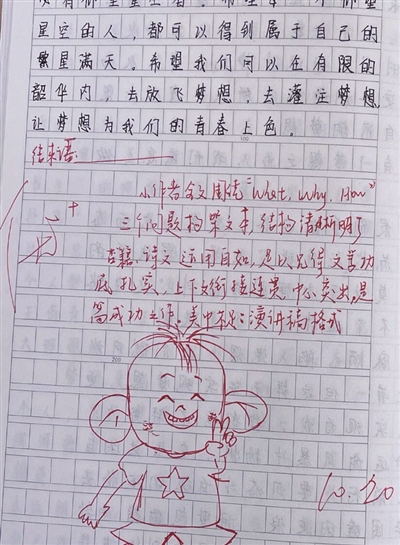 星空的人，都可以得到属于自己的
繁星满天。希望我们可以在有限的
韶华内，去放飞梦想，去灌注梦想，
让梦想为我们的青春上色。
结束语：
小作者全文围绕“What、Why、How”
三个问题构架文本，结构清晰明了
古籍、诗文运用自如，足以见得文言功
底扎实，上下文衔接连贯，中心突出，是
篇成功之作。美中不足：演讲稿格式
10.20